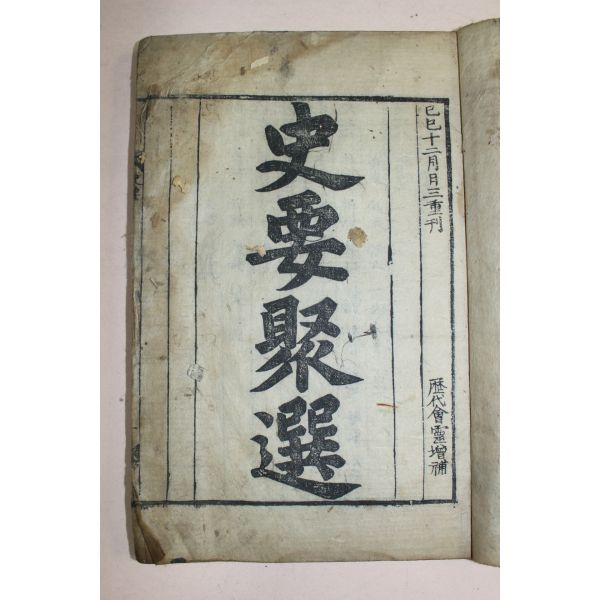 己巳十二月日三重刊
歴代會靈增補
史要聚選